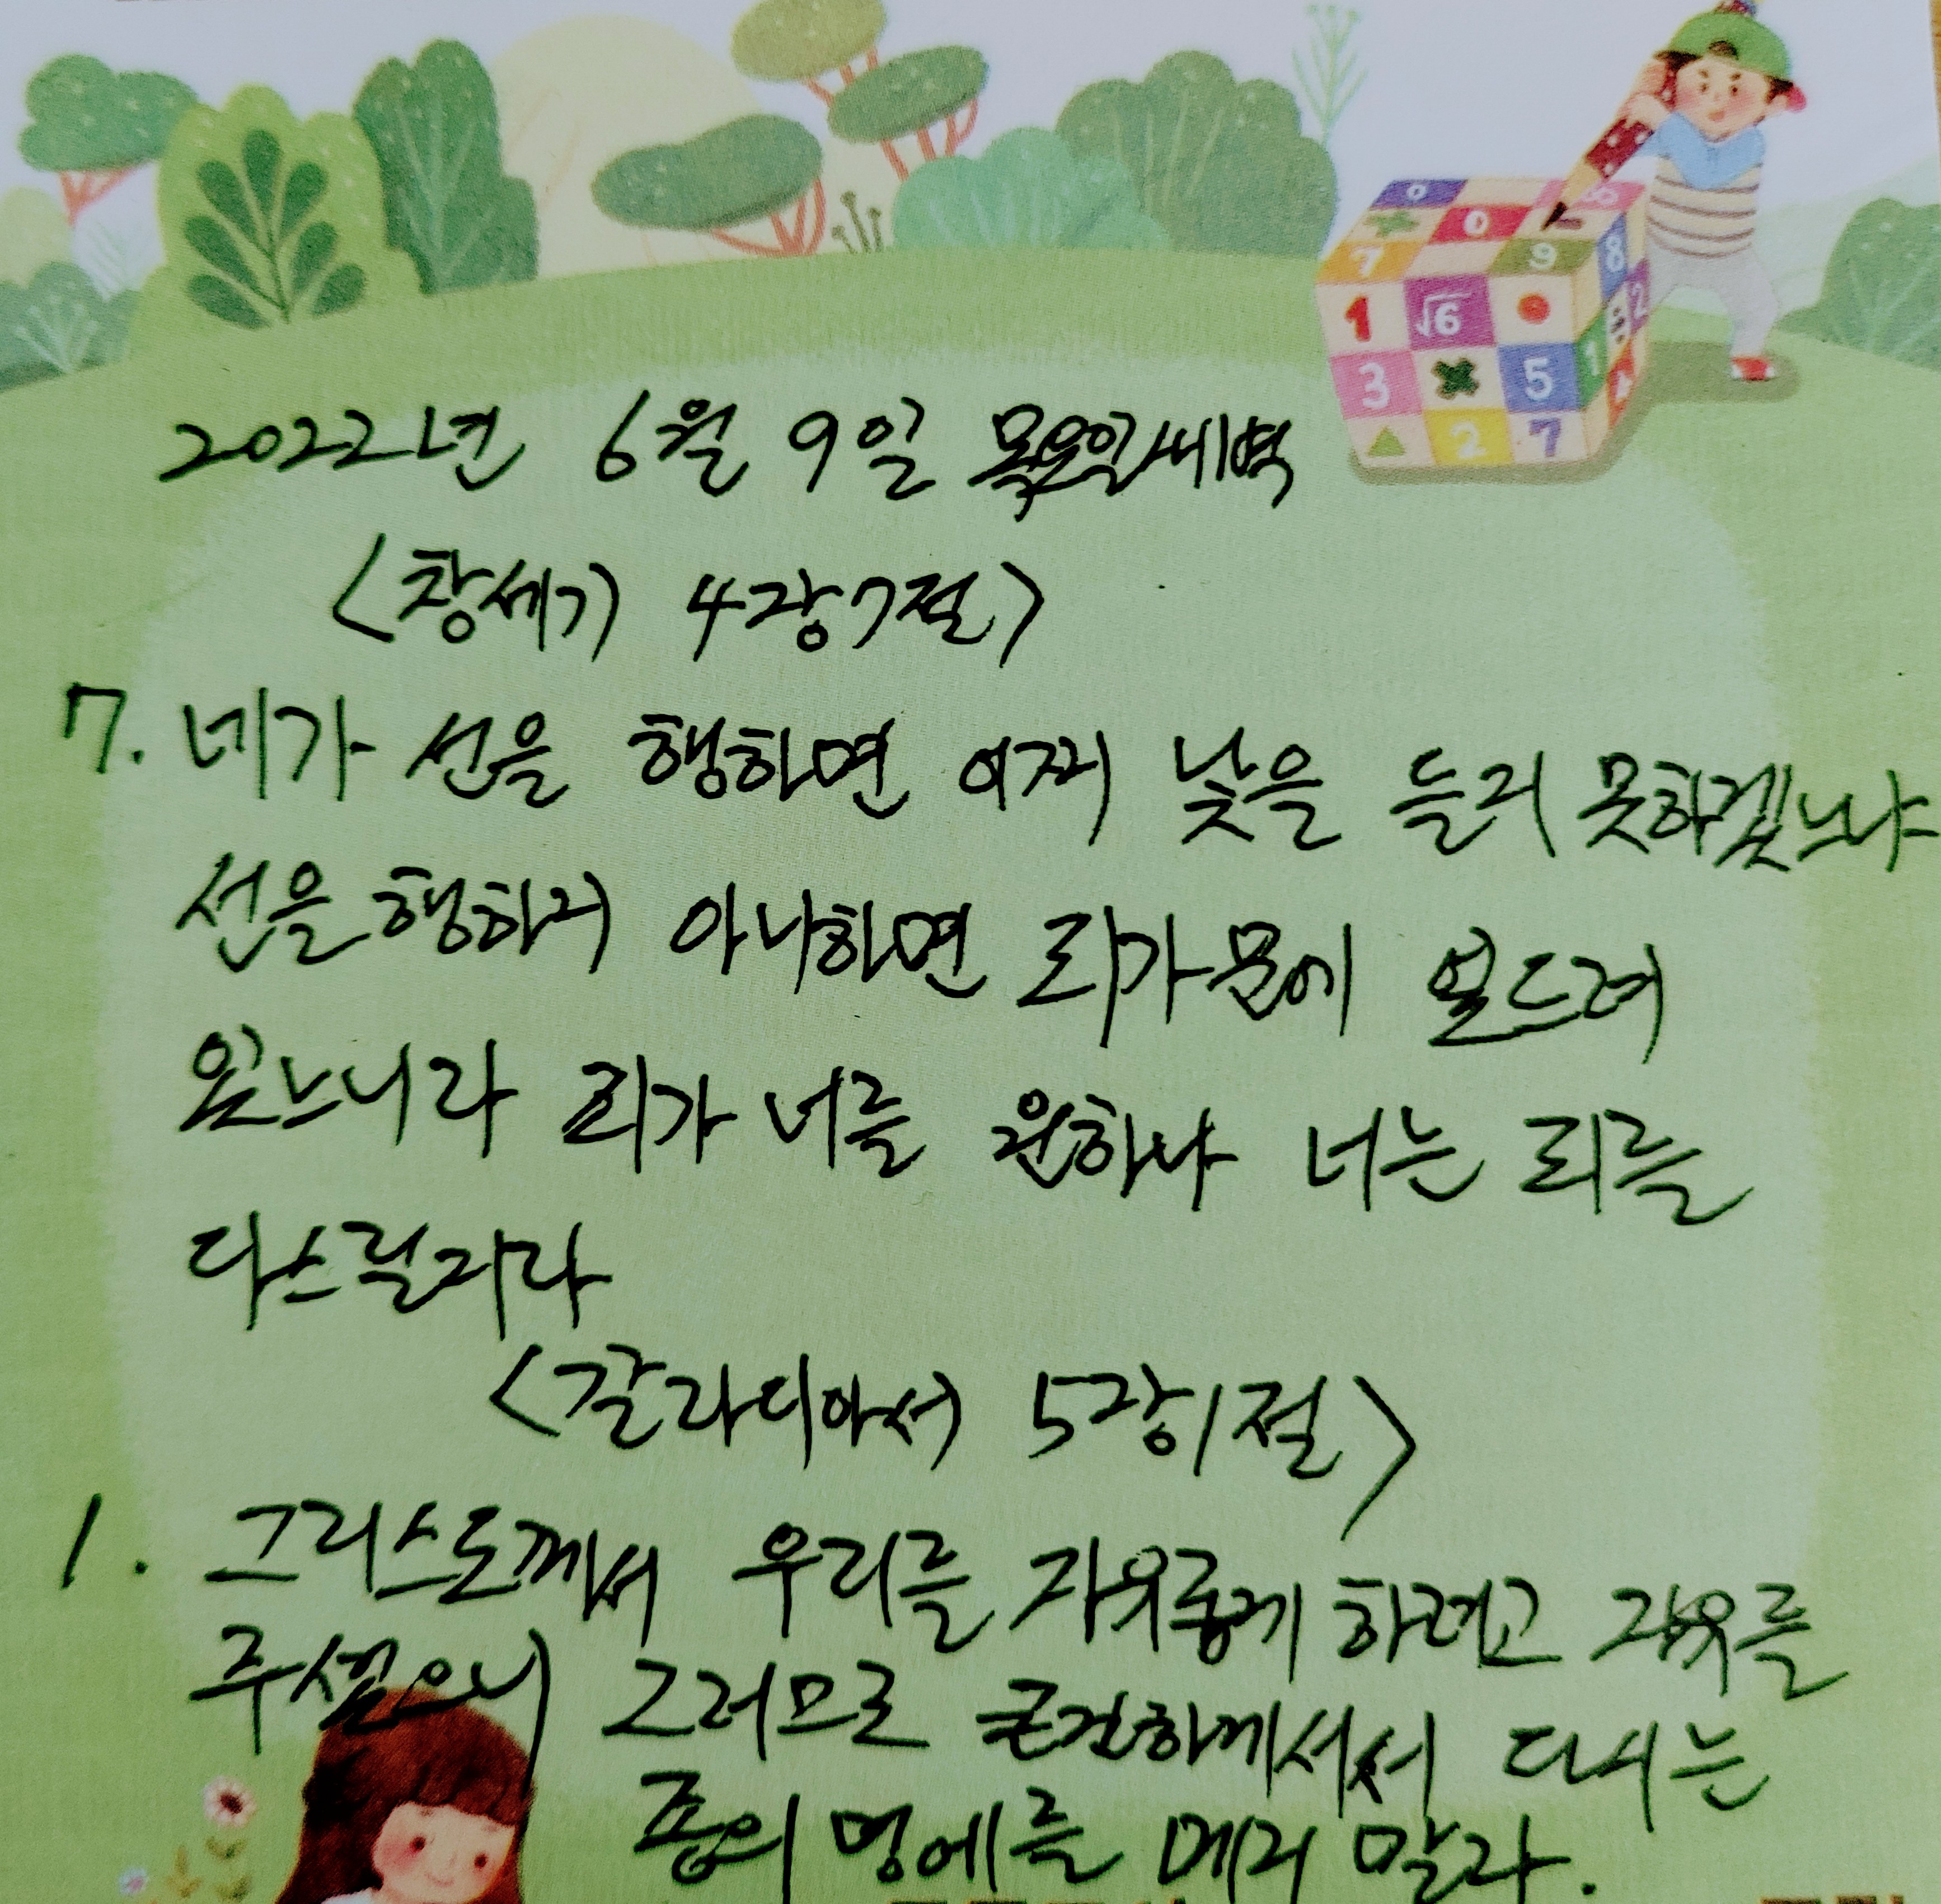 2022년 6월 9일 목요일새벽
<창세기 4장7절>
7. 네가 선을 행하면 어찌 낯을 들지 못하겠느냐
선을 행하지 아니하면 죄가 문에 엎드려
있느니라 죄가 너를 원하나 너는 죄를
다스릴지라
<갈라디아서 5장1절>
1. 그리스도께서 우리를 자유롭게 하려고 자유를
주셨으니 그러므로 굳건하게 서서 다시는
종의 멍에를 메지 말라.
0
0
7 9 8
1 √6 2
3 × 5 1
2 7